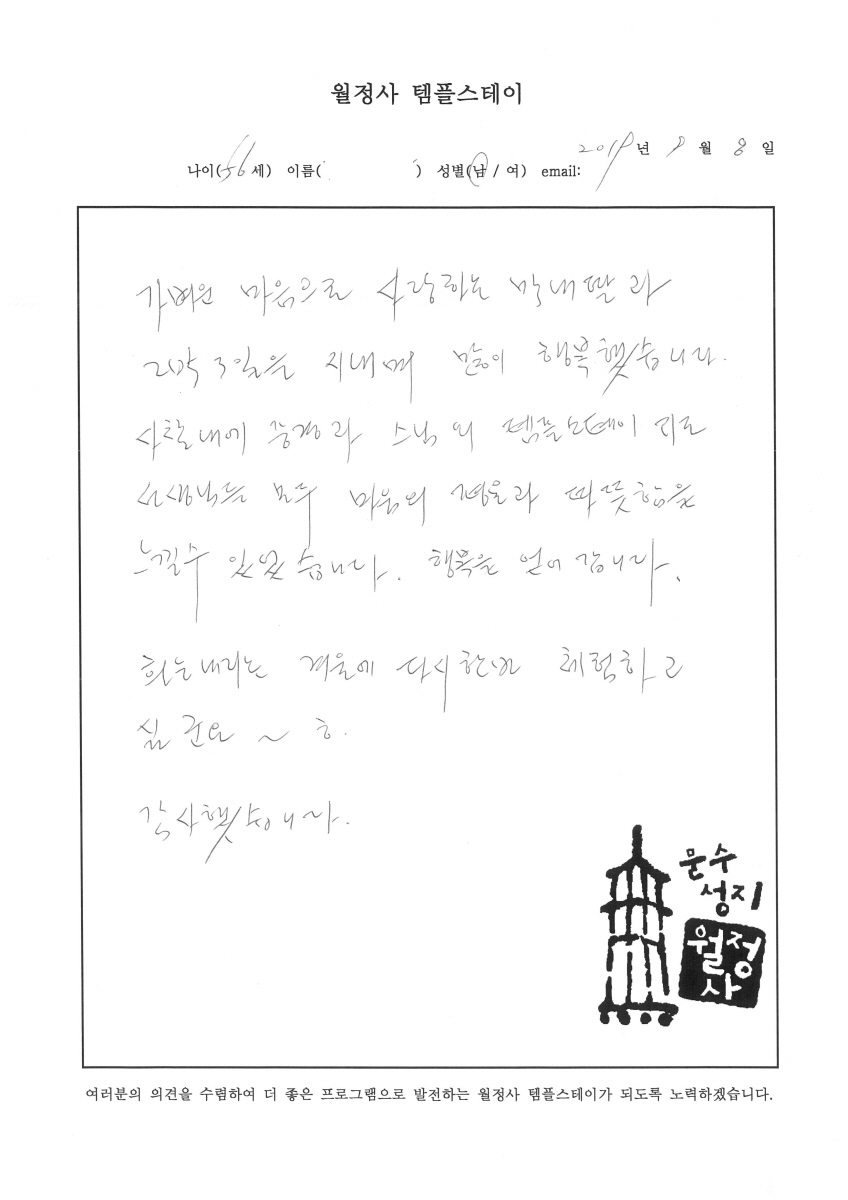 월정사 템플스테이
2019년 8월 8일
나이(56세) 이름( ) 성별(남 / 여) email:
가벼운 마음으로 사랑하는 막내딸과
2박 3일을 지내며 많이 행복했습니다.
사찰내에 풍경과 스님의 템플스테이 지도
선생님들 모두 마음의 평온과 따뜻함을
느낄수 있었습니다. 행복을 얻어 갑니다.
흰눈내리는 겨울에 다시한번 체험하고
싶군요 ~ ㅎ.
감사했습니다.
문수
성지
월정
사
여러분의 의견을 수렴하여 더 좋은 프로그램으로 발전하는 월정사 템플스테이가 되도록 노력하겠습니다.